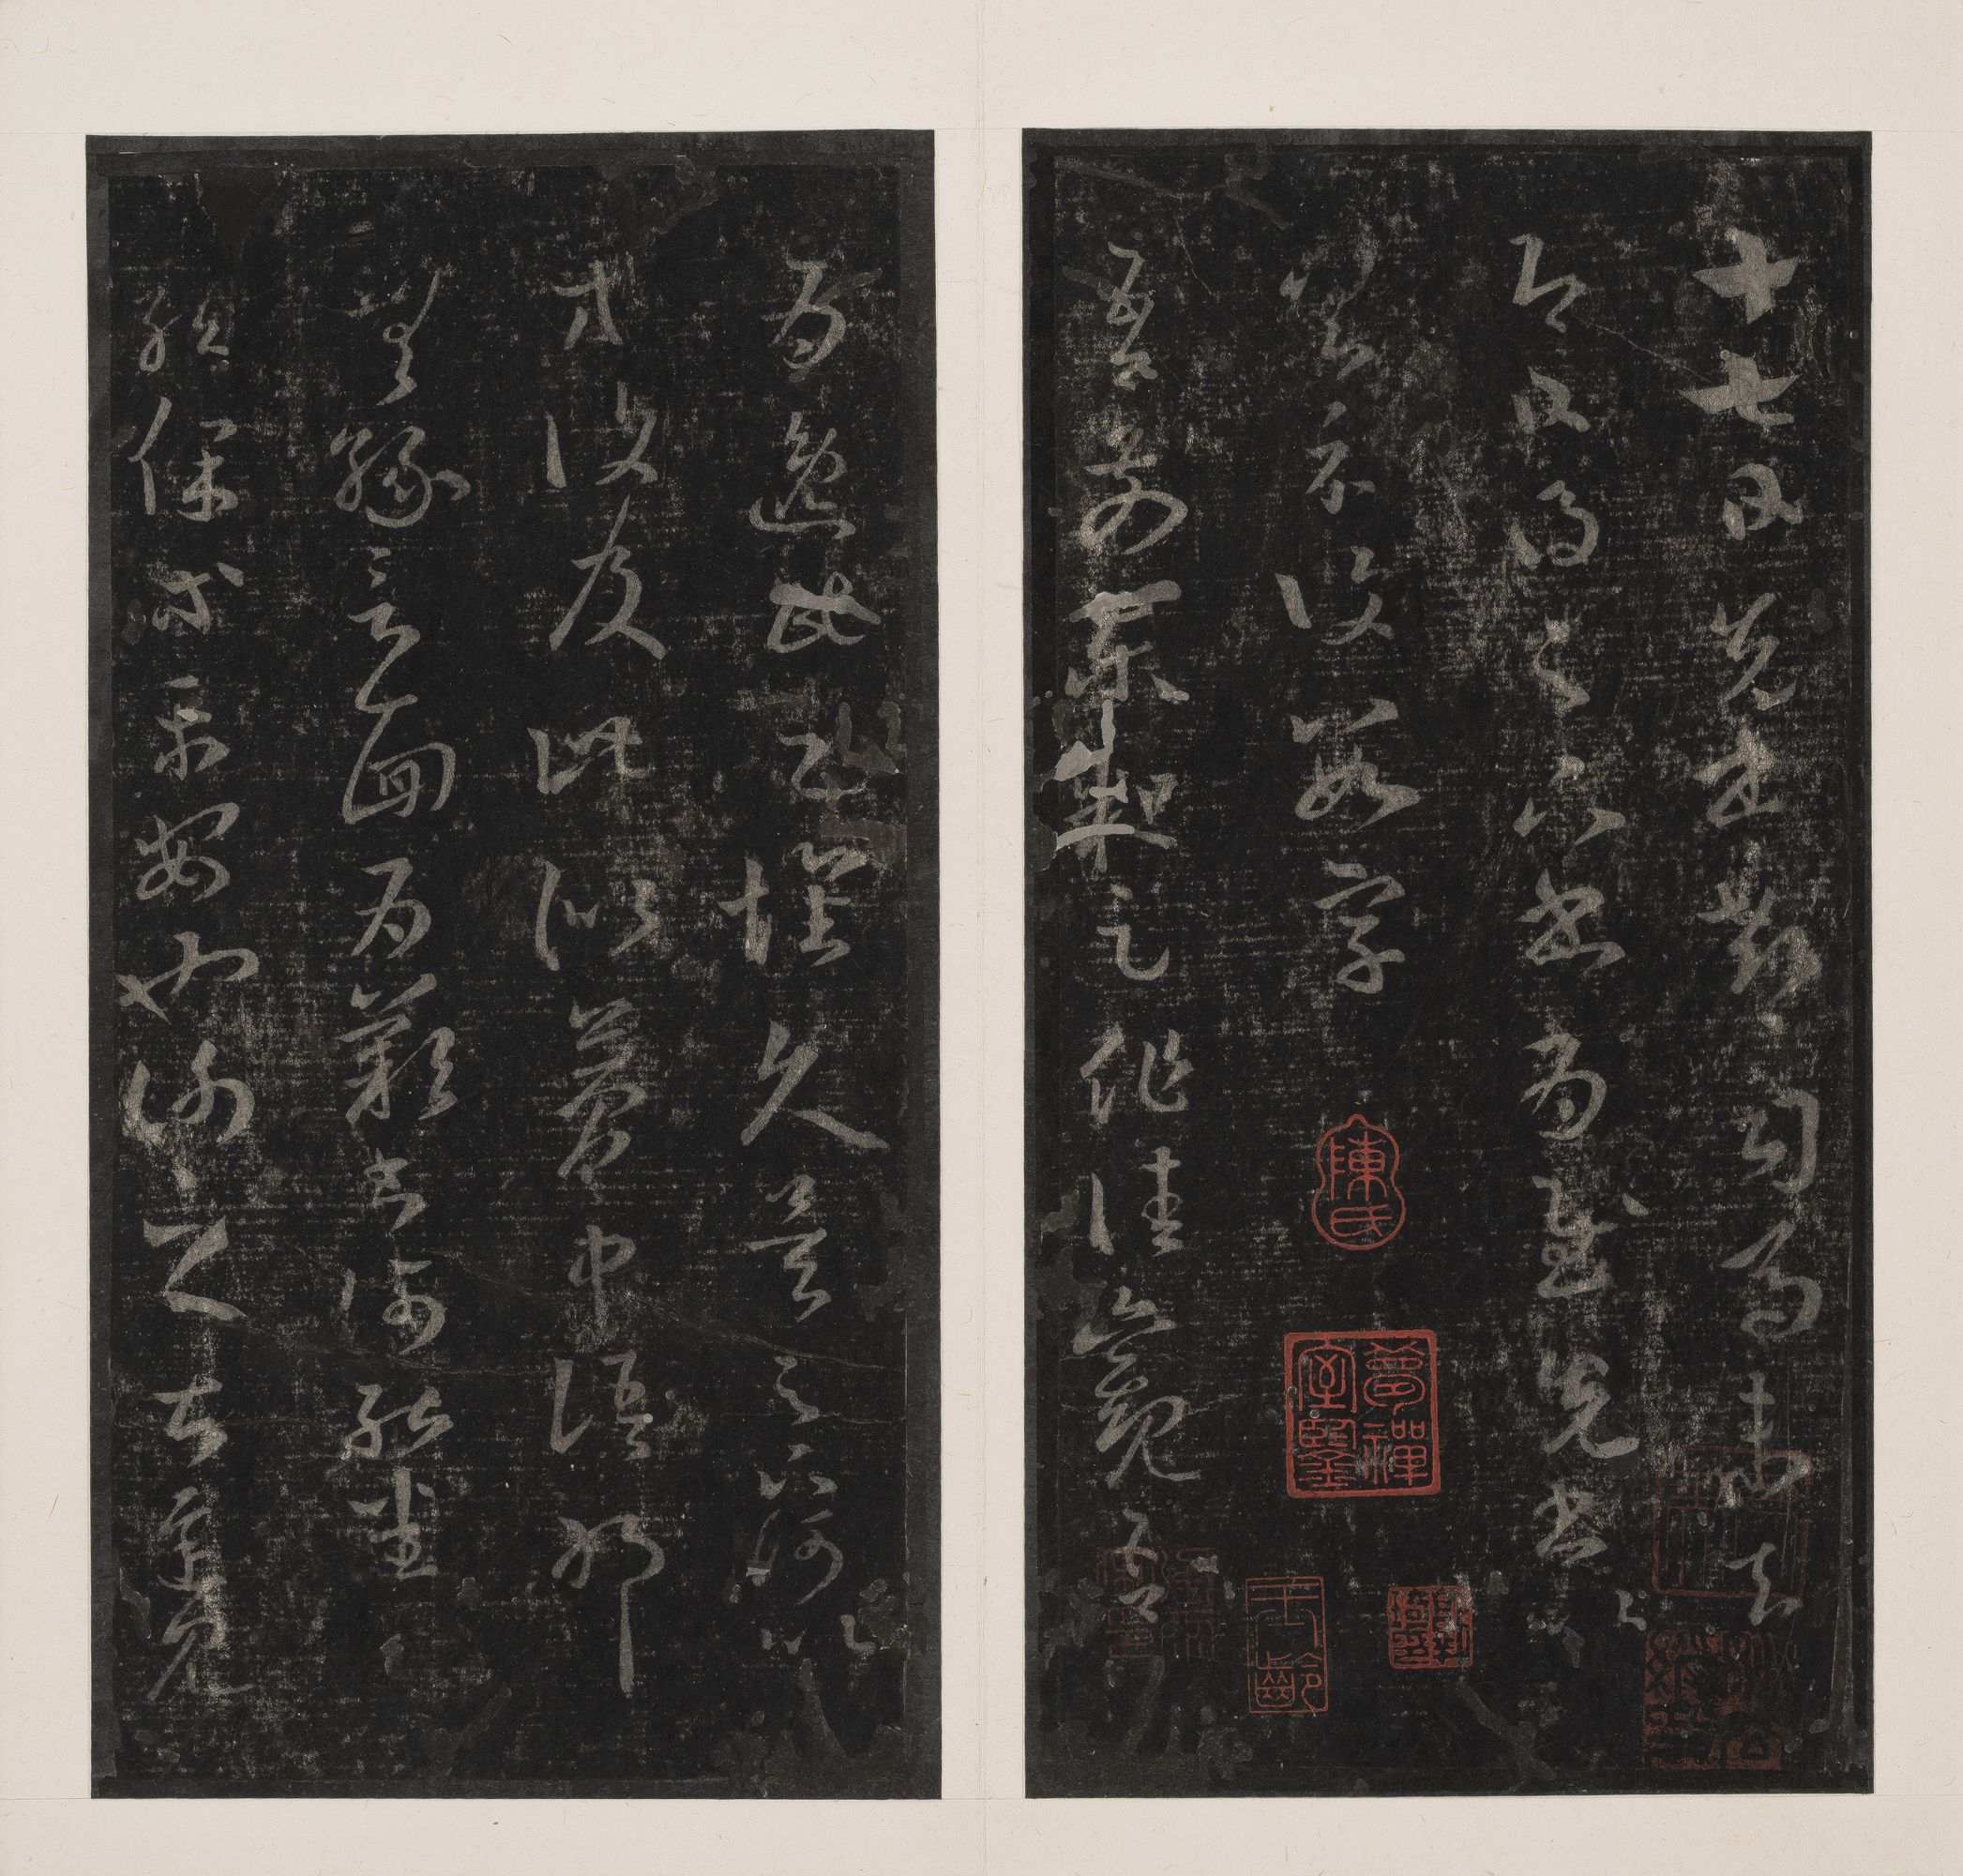 十七日先書郗司馬未去
即日得足下書為慰先書以
具示復數字
吾前東粗足作佳觀吾
為逸民之懷久矣足下何以
等復及此似夢中語耶
無緣言面為歎書何能悉
龍保等平安也謝之甚遲見
陳氏
夢禪室鑒